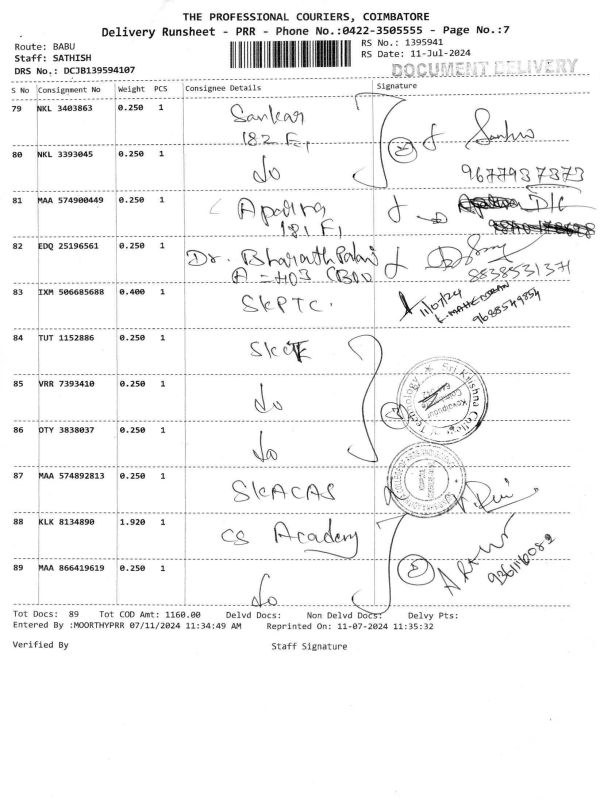 THE PROFESSIONAL COURIERS, COIMBATORE
Delivery Runsheet - PRR - Phone No.:0422-3505555 - Page No.:7
Route: BABU
Staff: SATHISH
DRS No.: DCJB139594107
RS No.: 1395941
RS Date: 11-Jul-2024
DOCUMENT DELIVERY
S No Consignment No Weight PCS Consignee Details Signature
79 NKL 3403863 0.250 1 Sankar
182 F1
80 NKL 3393045 0.250 1 do
2
9677937373
81 MAA 574900449 0.250 1 Apoorva
181 F1
82 EDQ 25196561 0.250 1 Dr. Bharath Palani
A = 403 CBOD
8838531371
83 IXM 506685688 0.400 1 SKPTC.
11/07/24
L. MAHENDRAN
9688549854
84 TUT 1152886 0.250 1 SKCT
85 VRR 7393410 0.250 1 do
3
Sri Krishna College of Technology
Kovaipudur
86 OTY 3838037 0.250 1 do
87 MAA 574892813 0.250 1 SKACAS
88 KLK 8134890 1.920 1 CS Academy
89 MAA 866419619 0.250 1 do
2
Tot Docs: 89 Tot COD Amt: 1160.00 Delvd Docs: Non Delvd Docs: Delvy Pts:
Entered By :MOORTHYPRR 07/11/2024 11:34:49 AM Reprinted On: 11-07-2024 11:35:32
Verified By Staff Signature